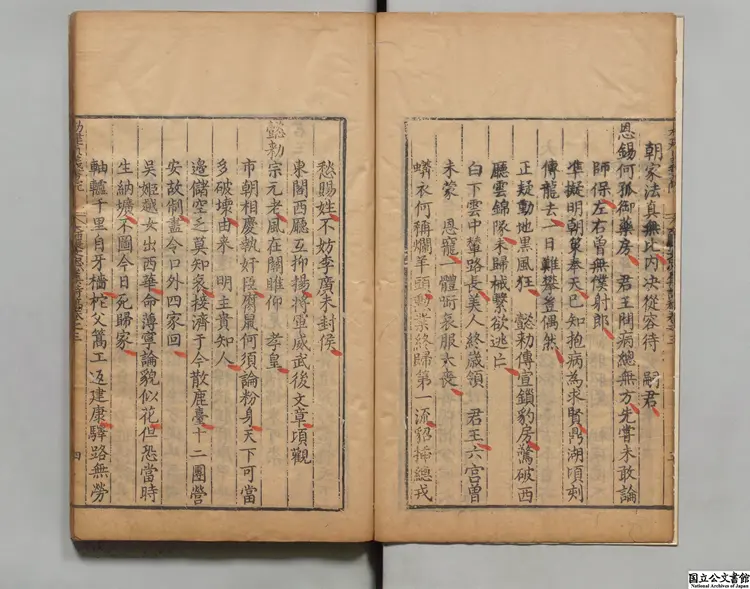 朝家法真無比内决從容待　嗣君
恩錫何狐御藥房　君王問病總無方先嘗未敢論
師保左右曾無僕射郎
凖擬明朝冀奉天已知抱病為求賢鼎湖頃刻
傳龍去一日難攀豈偶然
正疑動地黒風狂　懿勅傳宣鎖豹房驚破西
廳雲錦隊未歸械繫欲逃亡
白下雲中輦路長美人終歲領　君王六宮曾
未蒙　恩寵一體衝衰服大喪
蟒衣何稱爛羊頭勲業終歸第一流貂揷總戎
愁賜姓不妨李廣未封侯
東閣西廳互抑揚將軍威武後文章項觀
懿勅宗元老風在關雎仰　孝皇
市朝相慶執奸臣腐屍何須論粉身天下可當
多破壊由来　明主貴知人
邉儲空乏莫知哀接濟于今散鹿臺十二團營
安故制盡令口外四家囘
吳姬越女出西華命薄寧論貌似花但恐當時
生納壙不圖今日死歸家
舳艫千里自牙檣柁父篙工返建康驛路無勞
四
国立公文書館
National Archives of Japan